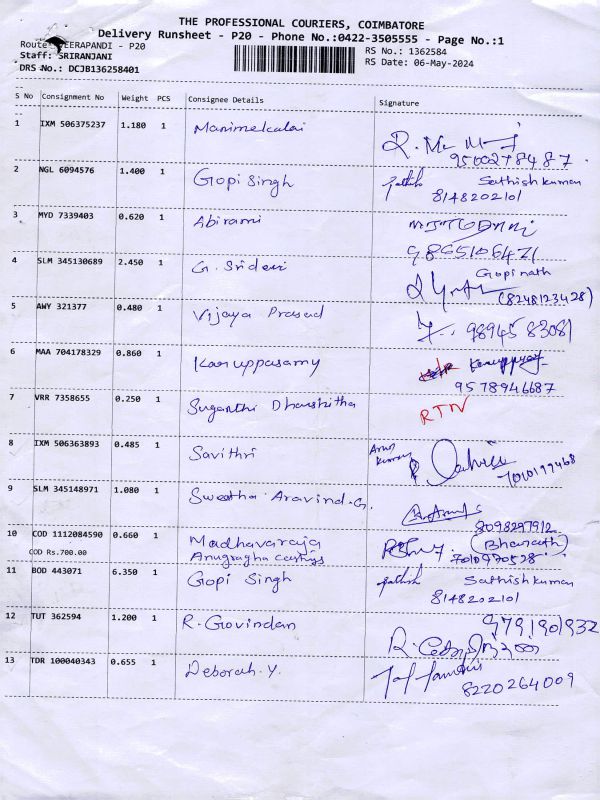 THE PROFESSIONAL COURIERS, COIMBATORE
Delivery Runsheet - P20 - Phone No.:0422-3505555 - Page No.:1
Route: EERAPANDI - P20
RS No.: 1362584
Staff: SRIRANJANI
RS Date: 06-May-2024
DRS No.: DCJB136258401
S No Consignment No Weight PCS Consignee Details Signature
1 IXM 506375237 1.180 1 Manimekalai
9500278487
2 NGL 6094576 1.400 1 Gopi Singh Sathish kumar
8148202101
3 MYD 7339403 0.620 1 Abirami
9865106421
4 SLM 345130689 2.450 1 G. Sridevi Gopinath
(8248123428)
5 AWY 321377 0.480 1 Vijaya Prasad 9894583081
6 MAA 704178329 0.860 1 Karuppasamy
9578946687
7 VRR 7358655 0.250 1 Suganthi Dharshitha RTN
8 IXM 506363893 0.485 1 Savithri Arun
kumar 7010199468
9 SLM 345148971 1.080 1 Swetha Aravind.G.
8098297912
10 COD 1112084590 0.660 1 Madhavaraja (Bharath)
COD Rs.700.00 Anugragha castings 7010970528
11 BOD 443071 6.350 1 Gopi Singh Sathish kumar
8148202101
12 TUT 362594 1.200 1 R. Govindan 9791901932
13 TDR 100040343 0.655 1 Deborah.Y.
8220264009